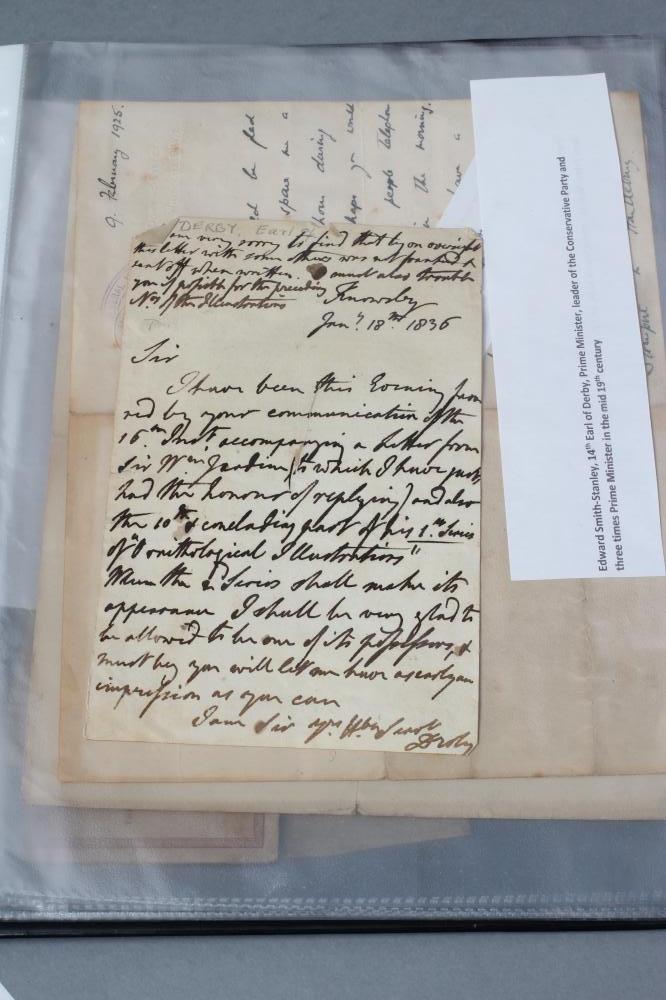 9. February 1925.
be glad
spare me a
hour during
would
people telephone
the morning.
DERBY, Earl of
am very sorry to find that by an oversight
this letter with some others was not franked &
sent off when written. I must also trouble
you if possible for the preceding
Nos. of the Illustrations
Knowsley
Jany. 18th 1836
Sir
I have been this Evening favou
red by your communication of the
16th Inst accompanying a Letter from
Sir Wm Jardine (to which I have just
had the honour of replying) and also
the 10th & concluding part of his 1st Series
of "Ornithological Illustrations"
When the 2d Series shall make its
appearance I shall be very glad to
be allowed to be one of its possessors, &
must beg you will let me have as early an
impression as you can
I am Sir yr. Hble Servt
Derby
Edward Smith-Stanley, 14th Earl of Derby, Prime Minister, leader of the Conservative Party and
three times Prime Minister in the mid 19th century